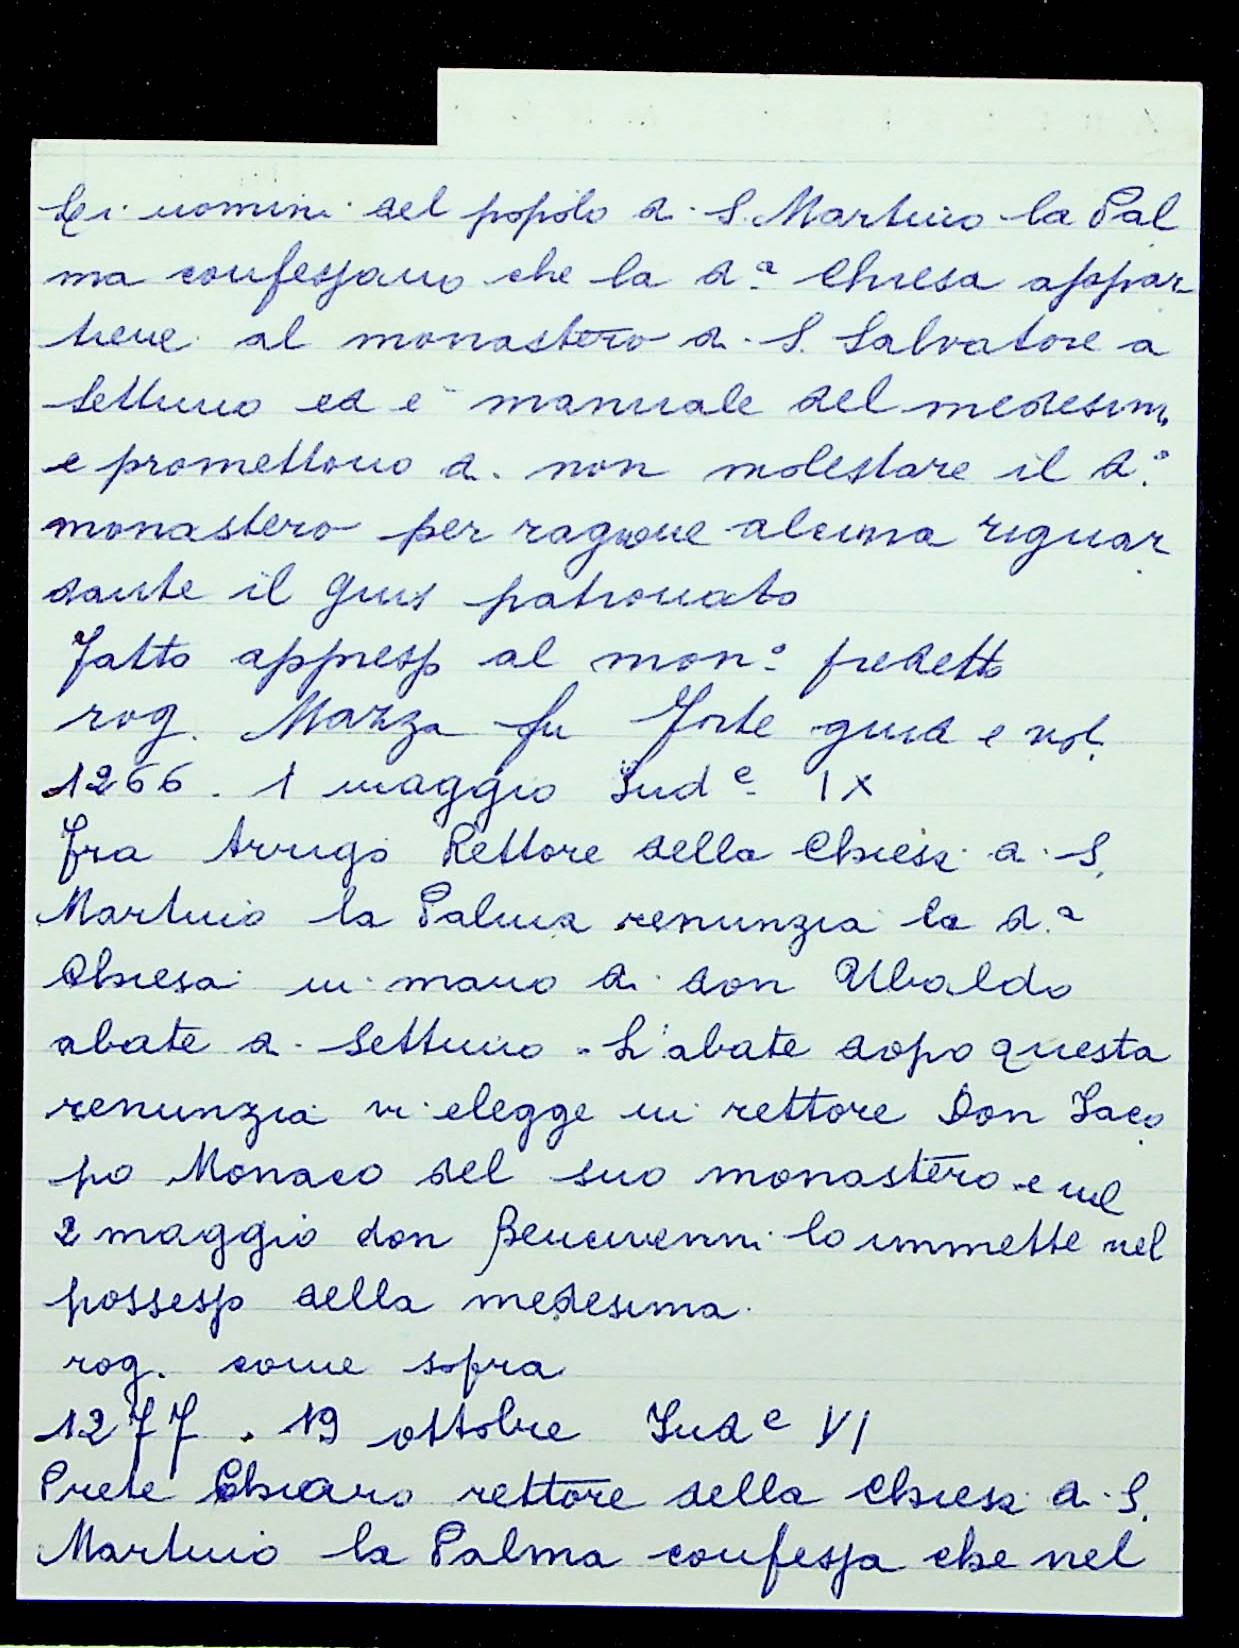 Gli uomini del popolo di S. Martino la Pal
ma confessano che la d.ª Chiesa appar
tiene al monastero di S. Salvatore a
Settimo ed è manuale del medesimo
e promettono di non molestare il d.º
monastero per ragione alcuna riguar
dante il gius patronato
Fatto appresso al mon.º predetto
rog. Mazza fu Forte giud e not.
1266. 1 maggio Ind.e IX
Fra Arrigo Rettore della Chiesa di S.
Martino la Palma renunzia la d.ª
Chiesa in mano di don Ubaldo
abate di Settimo. L'abate dopo questa
renunzia vi elegge in rettore Don Iaco
po Monaco del suo monastero e nel
2 maggio don Bencivenni lo immette nel
possesso della medesima.
rog. come sopra
1277. 19 ottobre Ind.e VI
Prete Chiaro rettore della Chiesa di S.
Martino la Palma confessa che nel